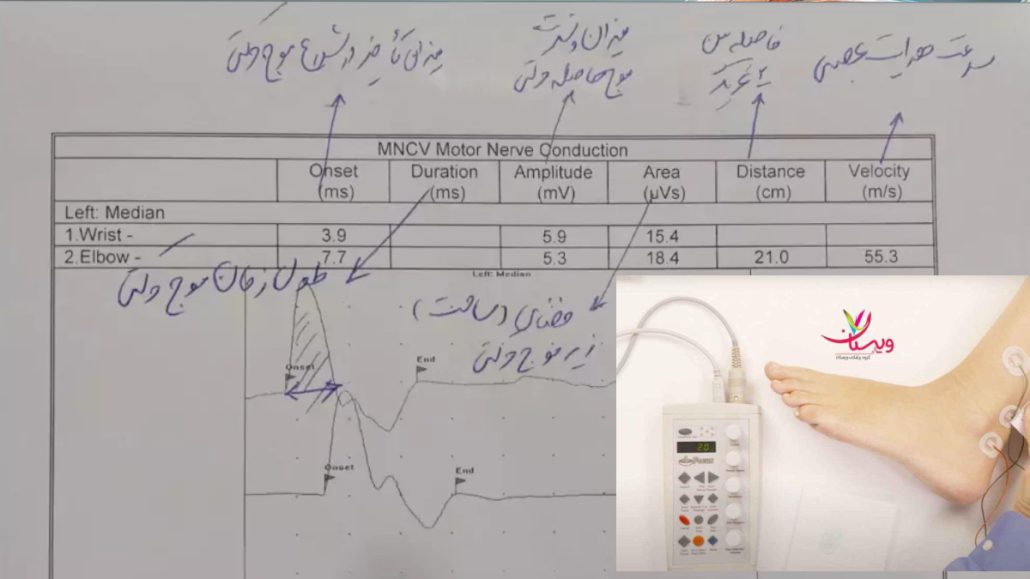 میزان تأخیر در شروع موج ولتی
میزان و شدت
موج حاصله ولتی
فاصله بین
۲ تحریک
سرعت هدایت عصبی
MNCV Motor Nerve Conduction
Onset (ms) Duration (ms) Amplitude (mV) Area (µVs) Distance (cm) Velocity (m/s)
Left: Median
1.Wrist - 3.9 5.9 15.4
2.Elbow - 7.7 5.3 18.4 21.0 55.3
Left: Median
طول زمان موج ولتی
فضای (مساحت)
زیر موج ولتی
Onset
End
Onset
End
ویستان
20